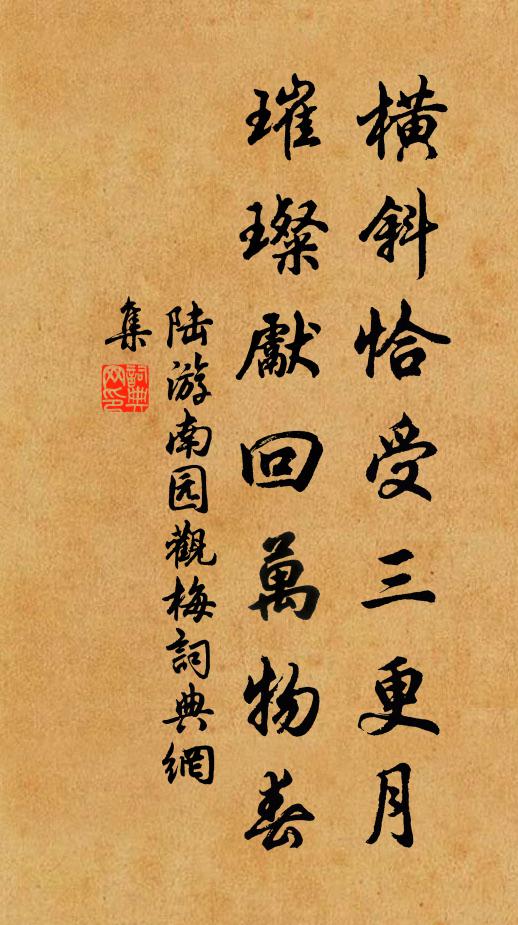 橫斜恰受三更月
璀璨獻回萬物春
陆游南园觀梅詞典網
集
詞典
网印